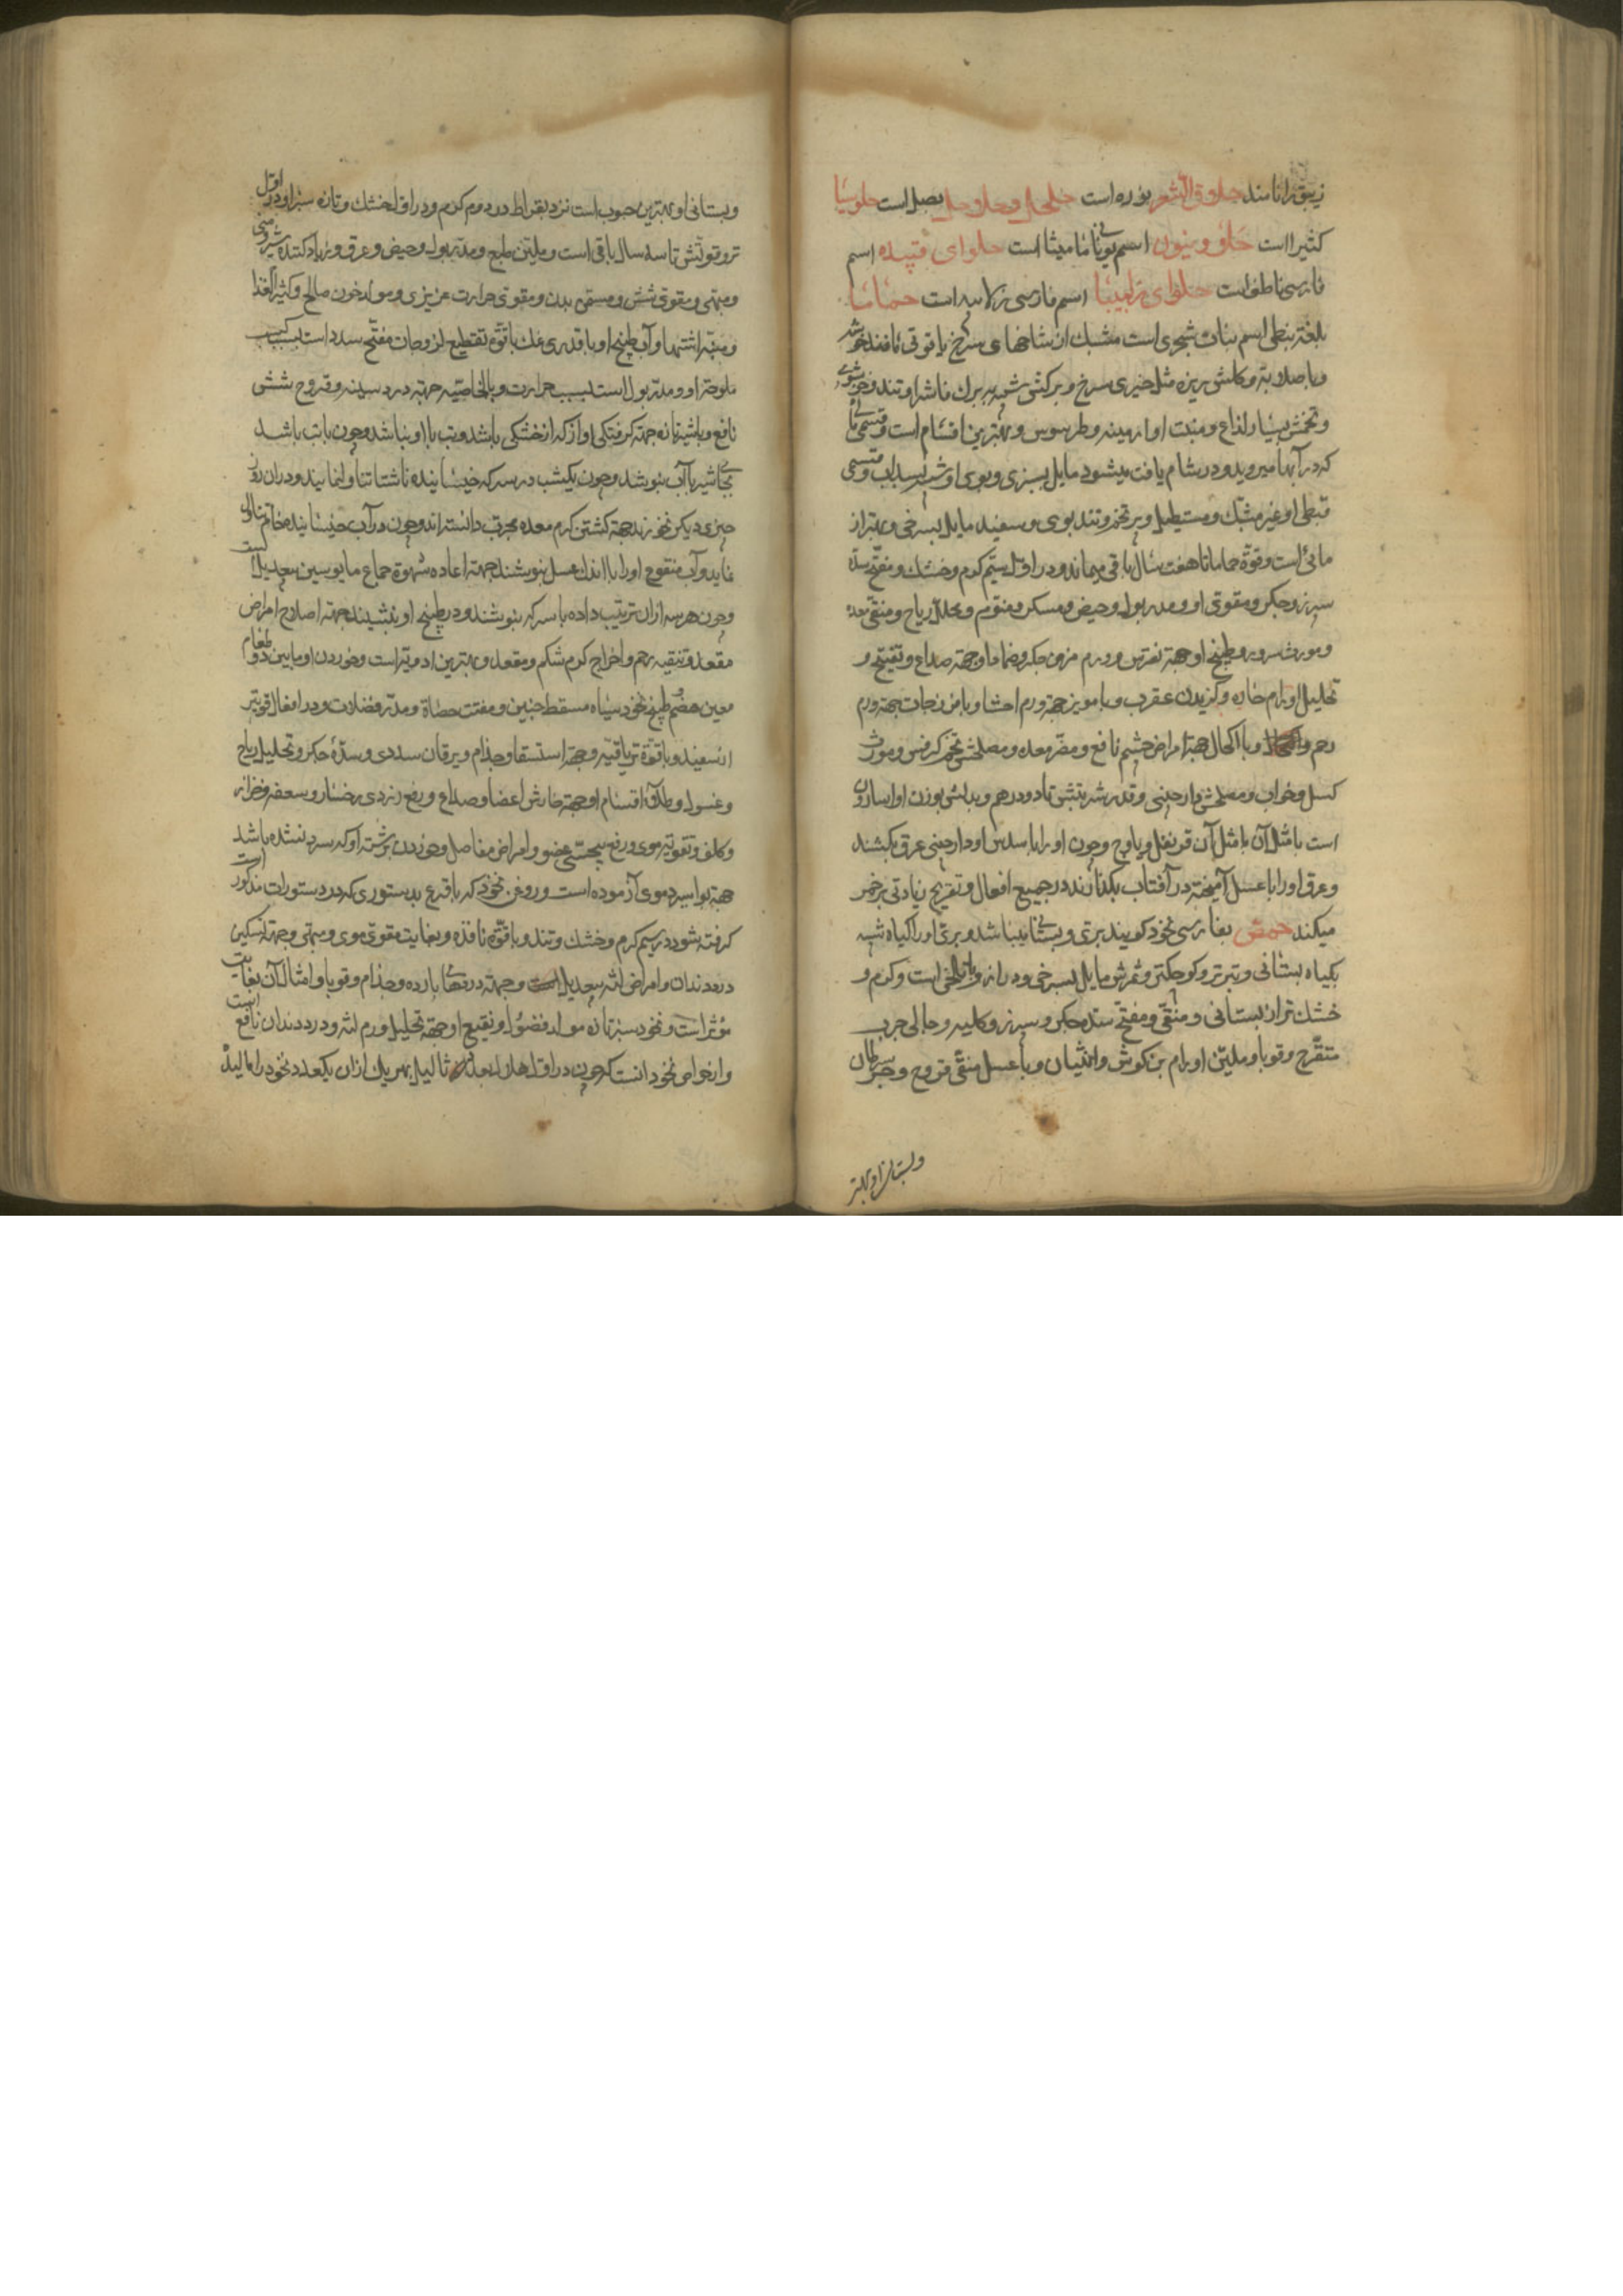 زیبق را نامند حلاوق الشعر بوره است حلحال و حلوحلا بصل است حلوسیا
کثیرا است حلو وینون اسم یونانی مامیثا است حلوای قپیده اسم
فارسی ناطف است حلوای زلیبیا اسم فارسی زلابیه است حماما
بلغة نبطی اسم نبات شجری است مشبک از شاخهای سرخ یاقوتی مانند خوشه
و با صلابة و کلش ریزه مثل خیری سرخ و برکش شبیه ببرک فاشرا و تند و خوشبوی
و تخمش بسیار لذاع و منبت او ارمینه و طرسوس و بهترین اقسام است و قسمی مائی
که در آبها میروید و در شام یافت میشود مایل بسبزی و بوی او شبیه بسداب و قسمی
قبطی و غیر مشبک و مستطیل و پر تخم و تند بوی و سفید مایل بسرخی و بهتر از
مائی است و قوة حماما تا هفت سال باقی میماند و در اول سیم کرم و خشک و مفتح سده
سپرز و جکر و مقوی او و مدر بول و حیض و مسکر و منوم و محلل ریاح و منقی معده
و مورث سرور و طبیخ او جهة نقرس و ورم مزمن جکر و ضماد او جهة صداع و تفتیح و
تحلیل اورام حاره و کزیدن عقرب و با مویز جهة ورم احشا و با فرزجات جهة ورم
رحم و با اکحال جهة امراض چشم نافع و مضر معده و مصلحش تخم کرفس و مورث
کسل و خواب و مصلحش دارچینی و قدر شربتش تا دو درهم و بدلش بوزن او اسارون
است یا مثل آن یا مثل آن قرنفل و یا وج و چون او را با سدس او دارچینی عرق بکشند
و عرق او را با عسل آمیخته در آفتاب بکذارند در جمیع افعال و تفریح زیادتی بر خمر
میکند حمص بفارسی نخود کویند بری و بستانی میباشد و بری او را کیاه شبیه
بکیاه بستانی و تیره‌تر و کوچکتر و ثمرش مایل بسرخی و دراز و با تلخی است و کرم و
خشک تر از بستانی و منقی و مفتح سده جکر و سپرز و کلیه و جالی جرب
متقرح و قوبا و ملین اورام بن کوش و انثیان و با عسل منقی قروح و جهة سرطان
و بستانی او بهتر
و بستانی او بهترین حبوب است نزد بقراط در دوم کرم و در اول خشک و تازه سبز او در اول
تر و قوتش تا سه سال باقی است و ملین طبع و مدر بول و حیض و عرق و زیاد کننده شیر و منی
و مبهی و مقوی شش و مسمن بدن و مقوی حرارت غریزی و مولد خون صالح و کثیر الغذا
و منبه اشتها و آب طبیخ او با قدری نمک با قوة تقطیع لزوجات مفتح سدد است بسبب
ملوحة او و مدر بول است بسبب حرارت و بالخاصیه جهة درد سینه و قروح شش
نافع و با شیر تازه جهة کرفتکی آواز که از خشکی باشد و تب با او نباشد و چون با تب باشد
بجای شیر با آب بنوشد و چون یکشب در سرکه خیسانیده ناشتا تناول نمایند و در آن روز
چیزی دیکر نخورند جهة کشتن کرم معده مجرب دانسته‌اند و چون در آب خیسانیده خام تناول
نمایند و آب منقوع او را با اندک عسل بنوشند جهة اعاده شهوة جماع مایوسین بیعدیل است
و چون هریسه از آن ترتیب داده با سرکه بنوشند و در طبیخ او بنشینند جهة اصلاح امراض
مقعد و تنقیه رحم و اخراج کرم شکم و مقعد و بهترین ادویه است و خوردن او مابین دو طعام
معین هضم و طبیخ نخود سیاه مسقط جنین و مفتت حصاة و مدر فضلات و در افعال قوی‌تر
از سفید و با قوة تریاقیه و جهة استسقا و جذام و یرقان سددی و سده جکر و تحلیل ریاح
و غسول و طلای اقسام او جهة خارش اعضا و صداع و رفع زردی رخسار و سعفه و حزاز
و کلف و تقویة موی و رفع پیچیدکی عضو و امراض مفاصل و خوردن برشته او که سرد نشده باشد
جهة بواسیر دموی آزموده است و روغن نخود که با قرع بدستوری که در دستورات مذکور است
کرفته شود در سیم کرم و خشک و تند و با قوه نافذه و بغایت مقوی موی و مبهی و جهة تسکین
درد دندان و امراض لثه بیعدیل و جهة دردهای بارده و جذام و قوبا و امثال آن بغایت
مؤثر است و نخود سبز تازه مولد فضول و نقیع او جهة تحلیل ورم لثه و درد دندان نافع است
و از خواص نخود آنست که چون در اول هلال بعدد ثالیل بهر یک از آن یکعدد نخود را مالیده